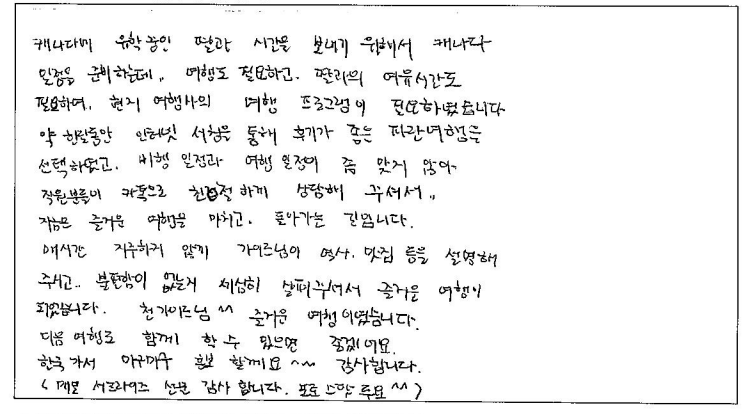 캐나다에 유학중인 딸과 시간을 보내기 위해서 캐나다
일정을 준비하는데,, 여행도 필요하고. 딸과의 여유시간도
필요하여, 현지 여행사의 여행 프로그램이 필요하였습니다
약 한달동안 인터넷 서칭을 통해 후기가 좋은 파란여행을
선택하였고. 비행 일정과 여행 일정이 좀 맞지 않아
직원분들이 카톡으로 친절하게 상담해 주셔서,,
지금은 즐거운 여행을 마치고. 돌아가는 길입니다.
매시간 지루하지 않게 가이드님이 역사. 맛집 등을 설명해
주시고.. 불편함이 없는지 세심히 살펴주셔서 즐거운 여행이
되었습니다. 천가이드님 ^^ 즐거운 여행이였습니다.
다음 여행도 함께 할 수 있으면 좋겠네요.
한국 가서 마구마구 홍보 할께요 ~~ 감사합니다.
( 서프라이즈 선물 감사 합니다. 포토 ^^ )